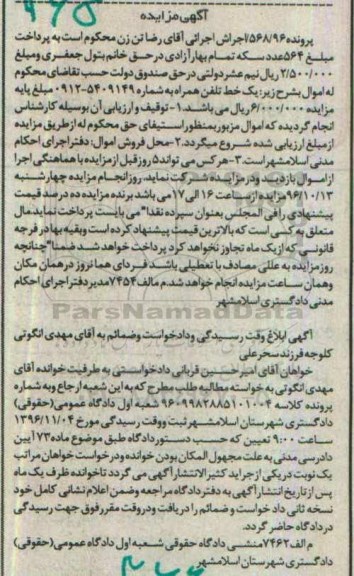 آگهی مزایده
پرونده ۵۶۸/۹۶ اجراش اجرائی آقای رضا تن زن محکوم است به پرداخت
مبلغ ۵۶۴ عدد سکه تمام بهار آزادی در حق خانم بتول جعفری و مبلغ
۲/۵۰۰/۰۰۰ ریال نیم عشر دولتی در حق صندوق دولت حسب تقاضای محکوم
له اموال بشرح زیر: یک خط تلفن همراه به شماره ۵۴۰۹۱۴۹-۰۹۱۲ مبلغ پایه
مزایده ۶/۰۰۰/۰۰۰ ریال می باشد. ۱- توقیف و ارزیابی آن بوسیله کارشناس
انجام گردیده که اموال مزبور بمنظور استیفای حق محکوم له از طریق مزایده
از مبلغ ارزیابی شده شروع میگردد. ۲- محل فروش اموال: دفتر اجرای احکام
مدنی اسلامشهر است. ۳- هر کس می تواند ۵ روز قبل از مزایده با هماهنگی اجرا
از اموال بازدید و در مزایده شرکت نماید، روز انجام مزایده چهارشنبه
۹۶/۱۰/۱۳ مزایده از ساعت ۱۶ الی ۱۷ می باشد برنده مزایده ده درصد قیمت
پیشنهادی را فی المجلس بعنوان سپرده نقدا" می بایست پرداخت نماید مال
متعلق به کسی است که بالاترین قیمت پیشنهاد کرده است و بقیه بها در فرجه
قانونی که از یک ماه تجاوز نخواهد کرد پرداخت خواهد شد ضمنا" چنانچه
روز مزایده به عللی مصادف با تعطیلی باشد فردای هما نروز در همان مکان
و همان ساعت مزایده انجام خواهد شد. م مالف ۷۴۵۴ مدیر دفتر اجرای احکام
مدنی دادگستری اسلامشهر
ParsNamadData
آگهی ابلاغ وقت رسیدگی و دادخواست و ضمائم به آقای مهدی انگوتی
کلوجه فرزند سحرعلی
خواهان آقای امیرحسین قربانی دادخواستی به طرفیت خوانده آقای
مهدی انگوتی به خواسته مطالبه طلب مطرح که به این شعبه ارجاع و به شماره
پرونده کلاسه ۹۶۰۹۹۸۲۸۸۵۱۰۱۰۰۴ شعبه اول دادگاه عمومی (حقوقی)
دادگستری شهرستان اسلامشهر ثبت و وقت رسیدگی مورخ ۱۳۹۶/۱۱/۰۴
ساعت ۹:۰۰ تعیین که حسب دستور دادگاه طبق موضوع ماده ۷۳ آیین
دادرسی مدنی به علت مجهول المکان بودن خوانده و درخواست خواهان مراتب
یک نوبت در یکی از جراید کثیرالانتشار آگهی می گردد تا خوانده ظرف یک ماه
پس از تاریخ انتشار آگهی به دفتر دادگاه مراجعه و ضمن اعلام نشانی کامل خود
نسخه ثانی دادخواست و ضمائم را دریافت و در وقت مقرر فوق جهت رسیدگی
در دادگاه حاضر گردد.
م الف ۷۴۶۲ منشی دادگاه حقوقی شعبه اول دادگاه عمومی (حقوقی)
دادگستری شهرستان اسلامشهر